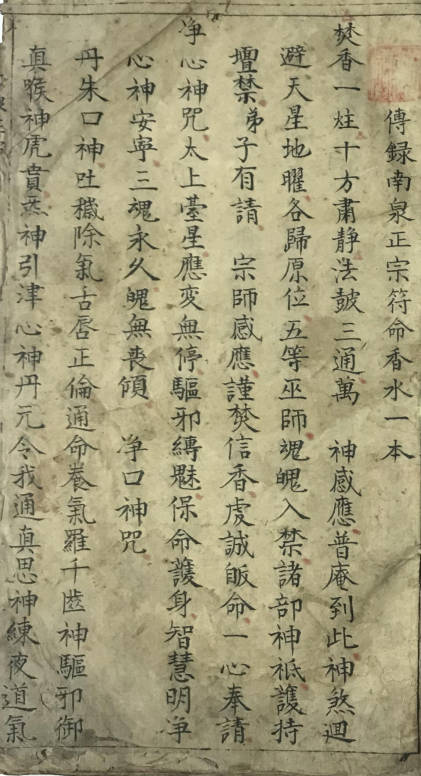 傳録南泉正宗符命香水一本
焚香一炷十方肅静法皷三通萬 神感應普庵到此神煞迴
避天星地曜各歸原位五等巫師魂魄入禁諸部神祇護持
壇禁弟子有請 宗師感應謹焚信香虔誠皈命一心奉請
净心神咒太上臺星應変無停驅邪縛魅保命護身智慧明净
心神安寕三魂永久魄無喪傾 净口神咒
丹朱口神吐穢除氣舌唇正倫通命養氣羅千齒神驅邪御
真喉神虎賁炁神引津心神丹元令我通真思神練夜道氣